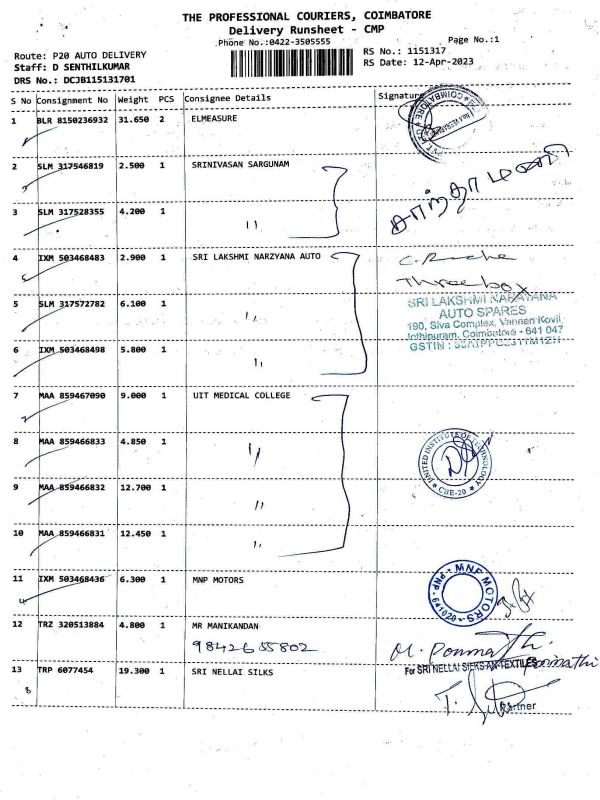 THE PROFESSIONAL COURIERS, COIMBATORE
Delivery Runsheet - CMP
Phone No.:0422-3505555
Page No.:1
Route: P20 AUTO DELIVERY
RS No.: 1151317
Staff: D SENTHILKUMAR
RS Date: 12-Apr-2023
DRS No.: DCJB115131701
S No Consignment No Weight PCS Consignee Details Signature
1 BLR 8150236932 31.650 2 ELMEASURE
2 SLM 317546819 2.500 1 SRINIVASAN SARGUNAM
3 SLM 317528355 4.200 1 11
4 IXM 503468483 2.900 1 SRI LAKSHMI NARZYANA AUTO
Three box
5 SLM 317572782 6.100 1 11
SRI LAKSHMI NARAYANA
AUTO SPARES
190, Siva Complex, Vannan Kovil
Jothipuram, Coimbatore - 641 047
GSTIN :
6 IXM 503468498 5.800 1 11
7 MAA 859467090 9.000 1 UIT MEDICAL COLLEGE
8 MAA 859466833 4.850 1 11
UNITED INSTITUTE OF TECHNOLOGY
CBE-20
9 MAA 859466832 12.700 1 11
10 MAA 859466831 12.450 1 11
11 IXM 503468436 6.300 1 MNP MOTORS
MNP MOTORS
PNP - 641020
12 TRZ 320513884 4.800 1 MR MANIKANDAN
9842655802
13 TRP 6077454 19.300 1 SRI NELLAI SILKS
For SRI NELLAI SILKS TEXTILES
8
Partner